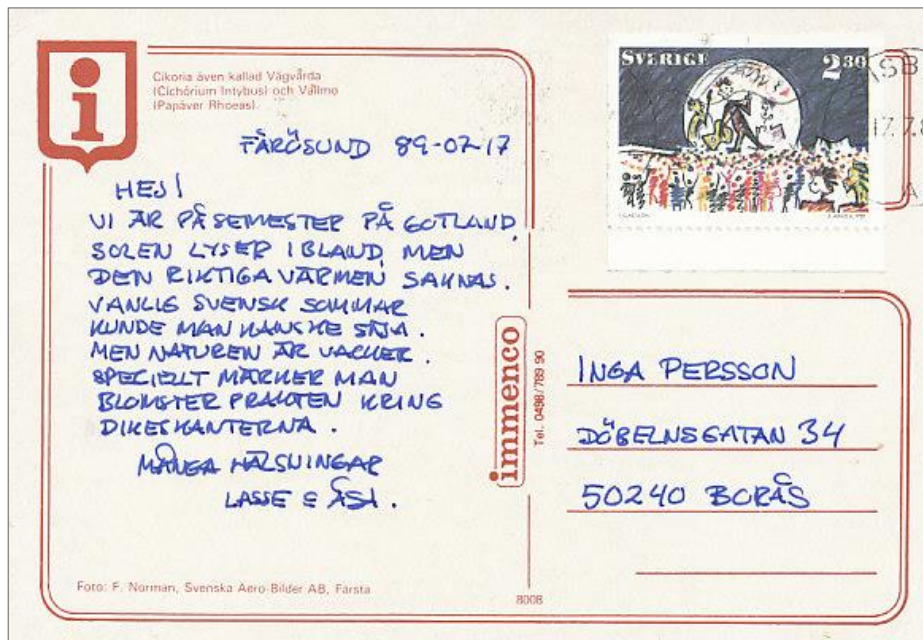 Cikoria även kallad Vägvårda
(Cichórium Intybus) och Vallmo
(Papáver Rhoeas).
FÅRÖSUND 89-07-17
HEJ!
VI ÄR PÅ SEMESTER PÅ GOTLAND,
SOLEN LYSER IBLAND, MEN
DEN RIKTIGA VÄRMEN SAKNAS.
VANLIG SVENSK SOMMAR
KUNDE MAN KANSKE SÄJA.
MEN NATUREN ÄR VACKER.
SPECIELLT MÄRKER MAN
BLOMSTER PRAKTEN KRING
DIKESKANTERNA.
MÅNGA HÄLSNINGAR
LASSE &
Foto: F. Norman, Svenska Aero-Bilder AB, Farsta
immenco
Tel. 0498/789 90
8008
SVERIGE 2.80
17.7.8
INGA PERSSON
DÖBELNSGATAN 34
50240 BORÅS